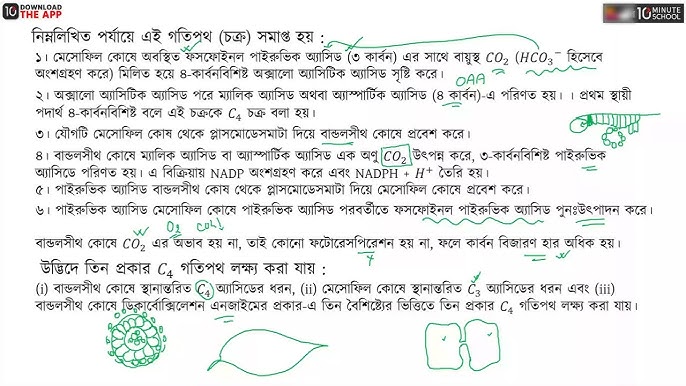 10 DOWNLOAD THE APP
10 MINUTE SCHOOL
নিম্নলিখিত পর্যায়ে এই গতিপথ (চক্র) সমাপ্ত হয় :
১। মেসোফিল কোষে অবস্থিত ফসফোইনল পাইরুভিক অ্যাসিড (৩ কার্বন) এর সাথে বায়ুস্থ CO₂ (HCO₃⁻ হিসেবে
অংশগ্রহণ করে) মিলিত হয়ে ৪-কার্বনবিশিষ্ট অক্সালো অ্যাসিটিক অ্যাসিড সৃষ্টি করে।
OAA
২। অক্সালো অ্যাসিটিক অ্যাসিড পরে ম্যালিক অ্যাসিড অথবা অ্যাস্পার্টিক অ্যাসিড (৪ কার্বন)-এ পরিণত হয়। । প্রথম স্থায়ী
পদার্থ ৪-কার্বনবিশিষ্ট বলে এই চক্রকে C₄ চক্র বলা হয়।
৩। যৌগটি মেসোফিল কোষ থেকে প্লাসমোডেসমাটা দিয়ে বান্ডলসীথ কোষে প্রবেশ করে।
৪। বান্ডলসীথ কোষে ম্যালিক অ্যাসিড বা অ্যাস্পার্টিক অ্যাসিড এক অণু CO₂ উৎপন্ন করে, ৩-কার্বনবিশিষ্ট পাইরুভিক
অ্যাসিডে পরিণত হয়। এ বিক্রিয়ায় NADP অংশগ্রহণ করে এবং NADPH + H⁺ তৈরি হয়।
৫। পাইরুভিক অ্যাসিড বান্ডলসীথ কোষ থেকে প্লাসমোডেসমাটা দিয়ে মেসোফিল কোষে প্রবেশ করে।
৬। পাইরুভিক অ্যাসিড মেসোফিল কোষে পাইরুভিক অ্যাসিড পরবর্তীতে ফসফোইনল পাইরুভিক অ্যাসিড পুনঃউৎপাদন করে।
O₂
বান্ডলসীথ কোষে CO₂ এর অভাব হয় না, তাই কোনো ফটোরেসপিরেশন হয় না, ফলে কার্বন বিজারণ হার অধিক হয়।
উদ্ভিদে তিন প্রকার C₄ গতিপথ লক্ষ্য করা যায় :
(i) বান্ডলসীথ কোষে স্থানান্তরিত C₄ অ্যাসিডের ধরন, (ii) মেসোফিল কোষে স্থানান্তরিত C₃ অ্যাসিডের ধরন এবং (iii)
বান্ডলসীথ কোষে ডিকার্বোক্সিলেশন এনজাইমের প্রকার-এ তিন বৈশিষ্ট্যের ভিত্তিতে তিন প্রকার C₄ গতিপথ লক্ষ্য করা যায়।